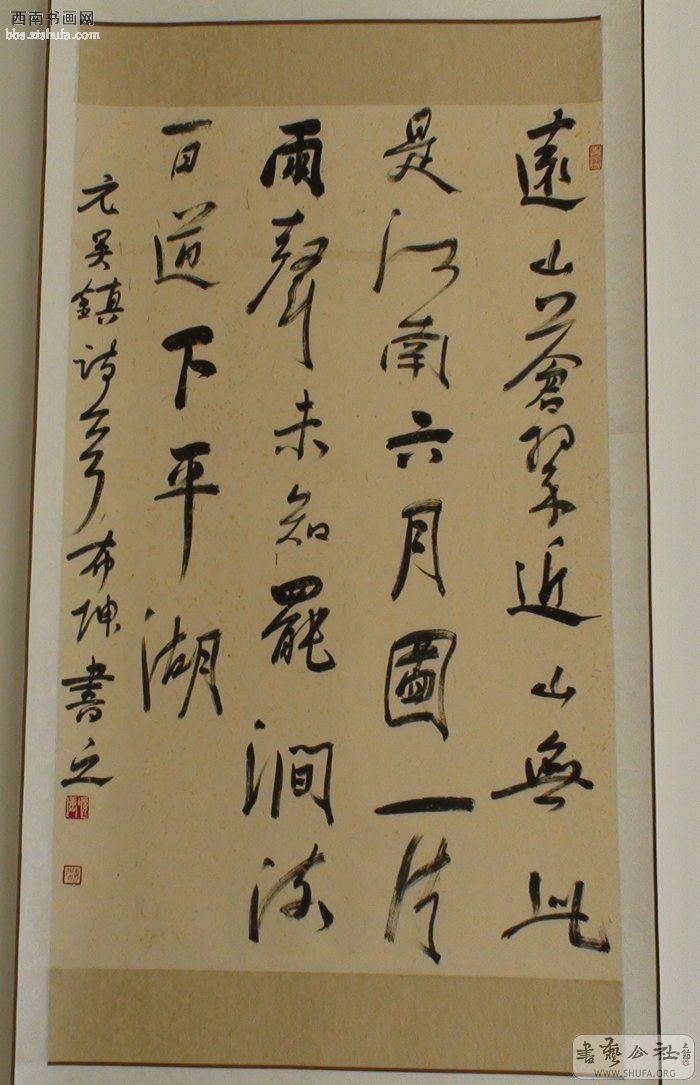 西南书画网
遠山蒼翠近山無此
是江南六月圖一片
雨聲未知罷澗流
百道下平湖
元吴鎮詩 書之
書藝公社
WWW.SHUFA.ORG